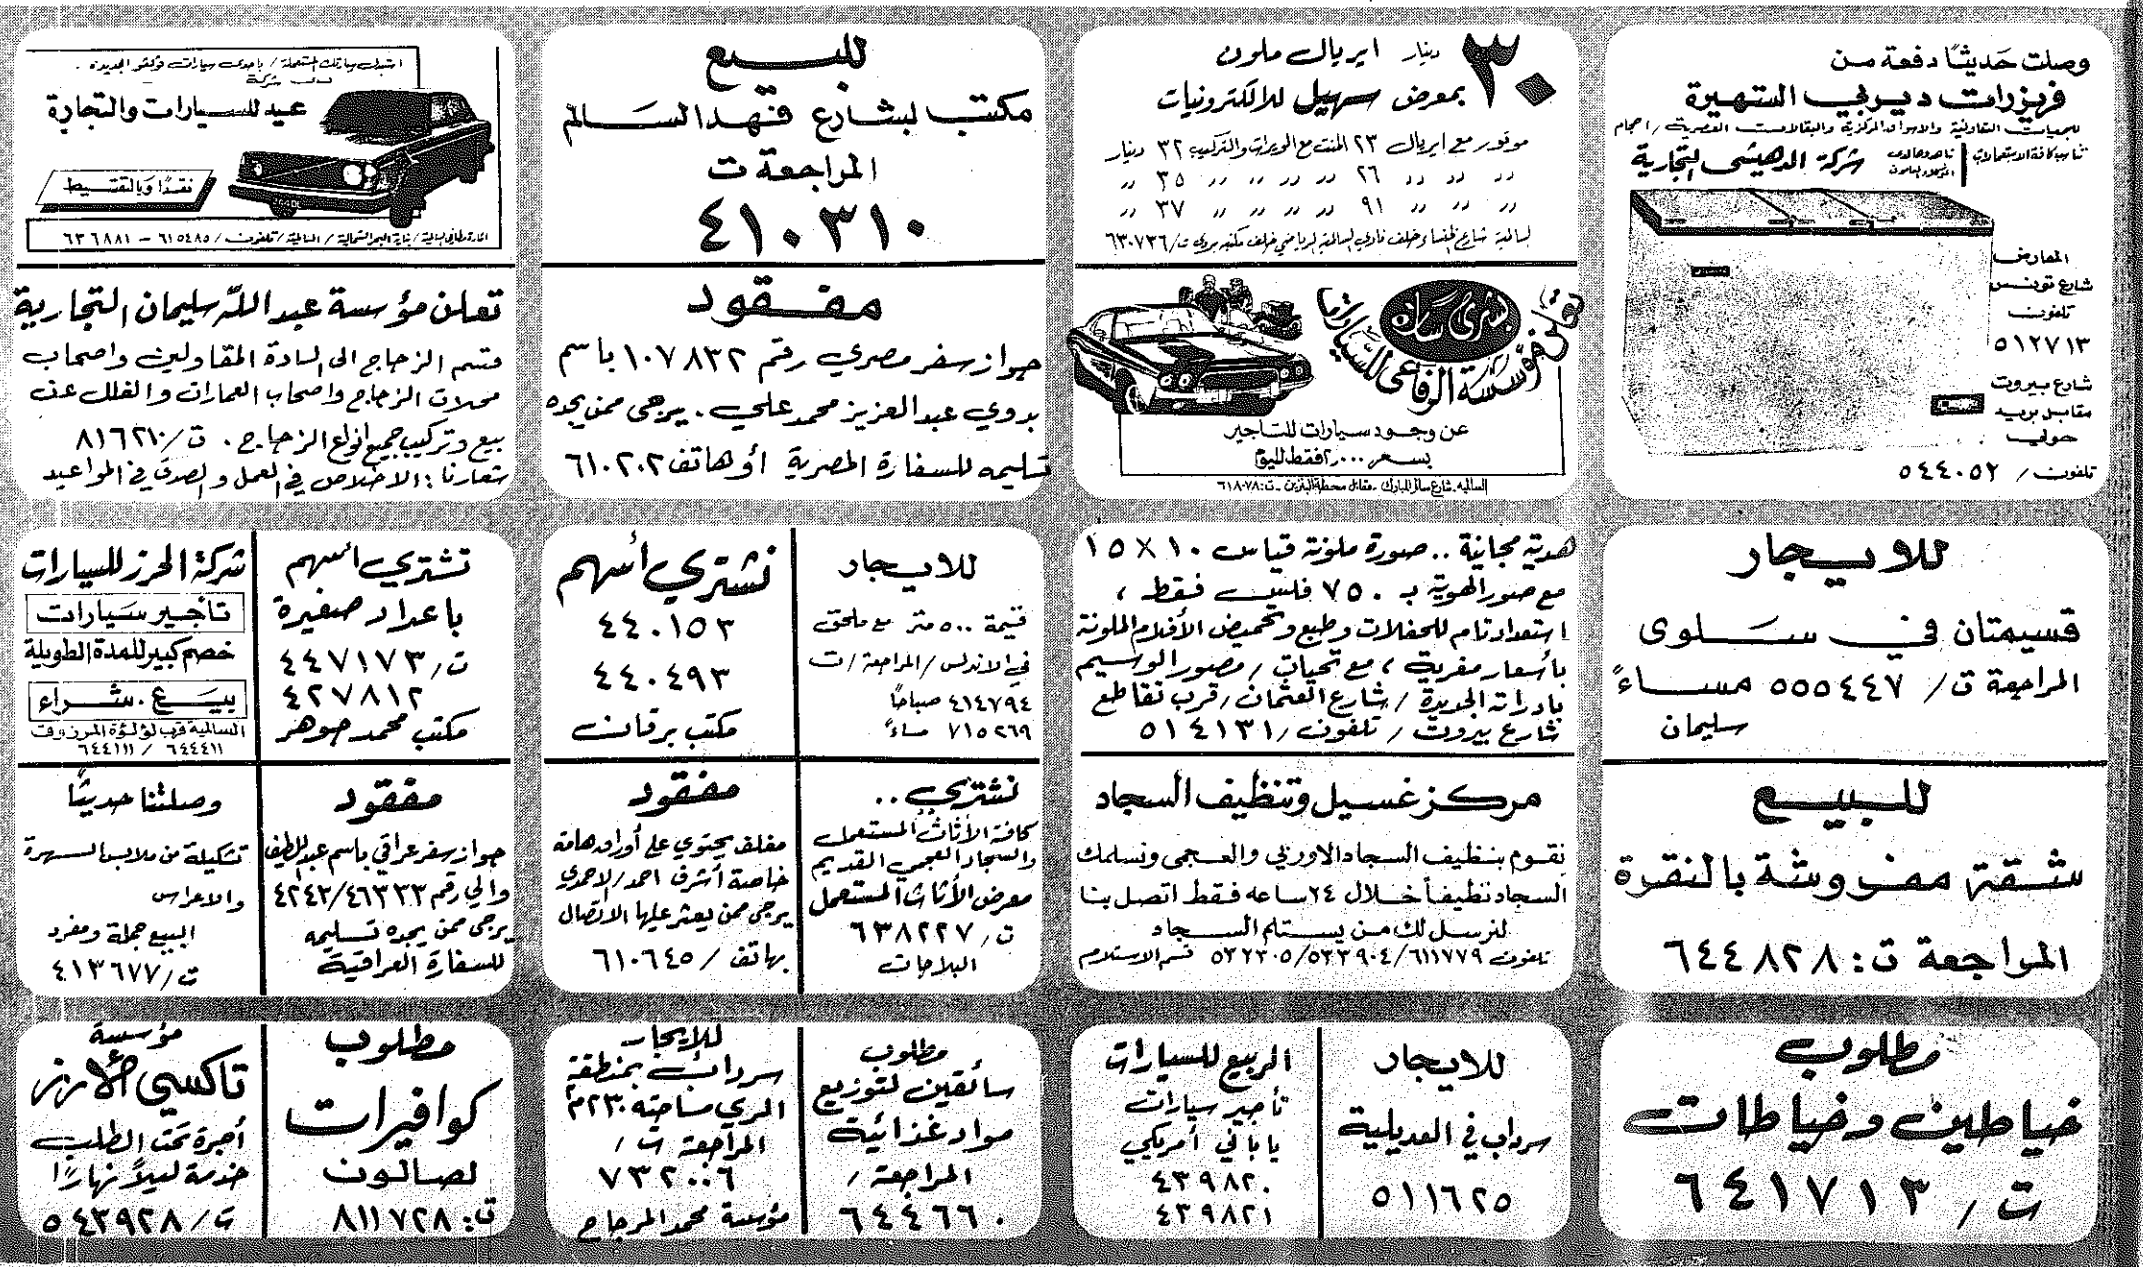 وصلت حديثاً دفعة من
فريزرات ديربي الشهيرة
للجمعيات التعاونية والاسواق المركزية والبقالات العصرية / احجام
تناسب كافة الاستعمالات
شركة الدهيشي التجارية
المعارض
شارع تونس
تلفون
٥١٢٧١٣
شارع بيروت
مقابل بريد
حولي
تلفون / ٥٤٤٠٥٢
٣٠ دينار ايريال ملون
بمعرض سهيل للالكترونيات
موتور مع ايريال ٢٣ المنت مع الويرات والتركيب ٣٢ دينار
〃 〃 〃 ٢٦ 〃 〃 〃 〃 ٣٥ 〃
〃 〃 〃 ٩١ 〃 〃 〃 〃 ٣٧ 〃
لسالمية شارع الخنساء خلف نادي السالمية الرياضي خلف مكتبة بروي ت/ ٦٣٠٧٣٦
تعلن مؤسسة الرفاعي للسيارات
عن وجود سيارات للتأجير
بسعر ٢٫٠٠٠ فقط لليوم
السالمية، شارع سالم المبارك - مقابل محطة البنزين - ت: ٦١٨٠٧٨
للبيع
مكتب بشارع فهد السالم
المراجعة ت
٤١٠٣١٠
مفقود
جواز سفر مصري رقم ١٠٧٨٣٢ باسم
بدوي عبدالعزيز محمد علي . يرجى ممن يجده
تسليمه للسفارة المصرية أو هاتف ٦١٠٢٠٢
استبدل سيارتك المستعملة / باحدى سيارات فولفو الجديدة .
لدى شركة
عيد للسيارات والتجارة
نقداً وبالتقسيط
السالمية / تلفون / ٦١٥٤٨٥ - ٦٣٦٨٨١
تعلن مؤسسة عبدالله سليمان التجارية
قسم الزجاج الى السادة المقاولين واصحاب
محلات الزجاج واصحاب العمارات والفلل عن
بيع وتركيب جميع انواع الزجاج . ت/ ٨١٦٢١٠
شعارنا : الاخلاص في العمل والصدق في المواعيد
للايجار
قسيمتان في سلوى
المراجعة ت/ ٥٥٥٤٤٧ مساءً
سليمان
للبيع
شقة مفروشة بالنقرة
المراجعة ت : ٦٤٤٨٢٨
هدية مجانية .. صورة ملونة قياس ١٠ × ١٥
مع صور الهوية بـ ٧٥٠ فلس فقط ،
استعداد تام للحفلات وطبع وتحميض الأفلام الملونة
بأسعار مغرية ، مع تحيات / مصور الوسيم
بادارته الجديدة / شارع العثمان / قرب تقاطع
شارع بيروت / تلفون / ٥١٤١٣١
مركز غسيل وتنظيف السجاد
نقوم بتنظيف السجاد الاوربي والعجمي ونسلمك
السجاد نظيفاً خلال ٢٤ ساعة فقط اتصل بنا
لنرسل لك من يستلم السجاد
تلفون ٦١١٧٧٩ / ٥٣٣٩٠٤ / ٥٣٢٣٠٥ قسم الاستلام
للايجار
قسيمة ٥٠٠ متر مع ملحق
في الاندلس / المراجعة / ت
٤١٤٧٩٤ صباحاً
٧١٥٢٦٩ مساءً
نشتري أسهم
٤٤٠١٥٣
٤٤٠٤٩٣
مكتب برقان
نشتري ..
كافة الأثاث المستعمل
والسجاد العجمي القديم
معرض الأثاث المستعمل
ت/ ٦٣٨٢٢٧
البلاجات
مفقود
مغلف يحتوي على أوراق هامة
خاصة أشرف احمد / لاحمدي
يرجى ممن يعثر عليها الاتصال
بهاتف / ٦١٠٦٤٥
نشتري اسهم
باعداد صغيرة
ت/ ٤٤٧١٧٣
٤٢٧٨١٢
مكتب محمد جوهر
شركة الحرز للسيارات
تأجير سيارات
خصم كبير للمدة الطويلة
بيع . شراء
السالمية قرب لؤلؤة المرزوق
٦٤٤٤١١ / ٦٤٤١١١
مفقود
جواز سفر عراقي باسم عبداللطيف
والي رقم ٤٢٤٣/٤٦٣٣٣
يرجى ممن يجده تسليمه
للسفارة العراقية
وصلتنا حديثاً
تشكيلة من ملابس السهرة
والاعراس
البيع جملة ومفرد
ت/ ٤١٣٦٧٧
مطلوب
خياطين وخياطات
ت/ ٦٤١٧١٣
للايجار
سرداب في العديلية
٥١١٦٢٥
الربيع للسيارات
تأجير سيارات
ياباني أمريكي
٤٣٩٨٢٠
٤٣٩٨٢١
مطلوب
سائقين لتوزيع
مواد غذائية
المراجعة /
٦٤٤٦٦٠
للايجار
سرداب بمنطقة
الري مساحته ٢٣٠م
المراجعة ت /
٧٣٢٠٠٦
مؤسسة محمد المرجاح
مطلوب
كوافيرات
لصالون
ت: ٨١١٧٢٨
مؤسسة
تاكسي الأرز
أجرة تحت الطلب
خدمة ليلاً نهاراً
ت/ ٥٤٣٩٢٨